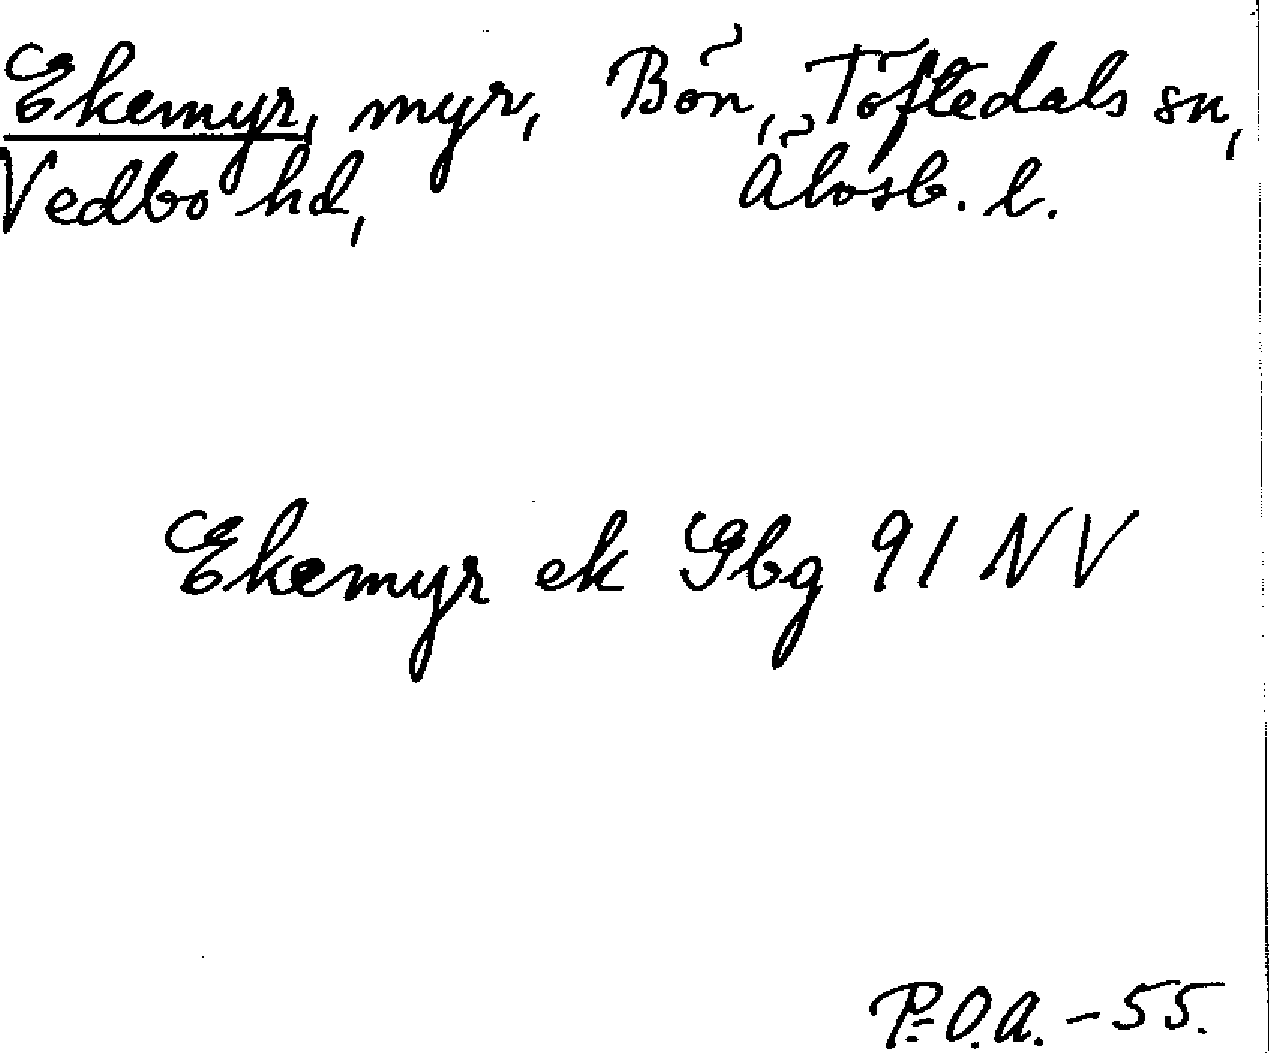 Ekemyr, myr, Bön, Töftedals sn,
Vedbo hd, Älvsb. l.
Ekemyr ek Gbg 91 NV
P.-O.A. - 55.